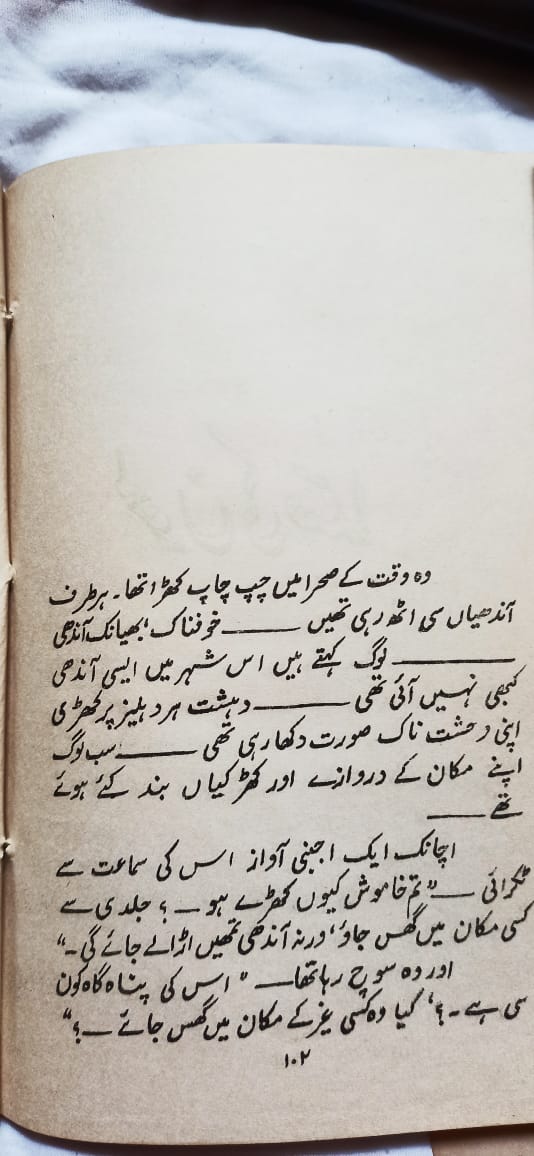 وہ وقت کے صحرا میں چپ چاپ کھڑا تھا۔ ہر طرف
آندھیاں سی اٹھ رہی تھیں ــــــــ خوفناک، بھیانک آندھی
ــــــــ لوگ کہتے ہیں اس شہر میں ایسی آندھی
کبھی نہیں آئی تھی ــــــــ دہشت ہر دہلیز پر کھڑی
اپنی وحشت ناک صورت دکھا رہی تھی ــــــــ سب لوگ
اپنے مکان کے دروازے اور کھڑکیاں بند کئے ہوئے
تھے ــــــــ
اچانک ایک اجنبی آواز اس کی سماعت سے
ٹکرائی ــــ "تم خاموش کیوں کھڑے ہو ــ؟ جلدی سے
کسی مکان میں گھس جاؤ، ورنہ آندھی تمھیں اڑا لے جائے گی ــ"
اور وہ سوچ رہا تھا ــــ "اس کی پناہ گاہ کون
سی ہے ــ؟، کیا وہ کسی غیر کے مکان میں گھس جائے ــ؟"
۱۰۲